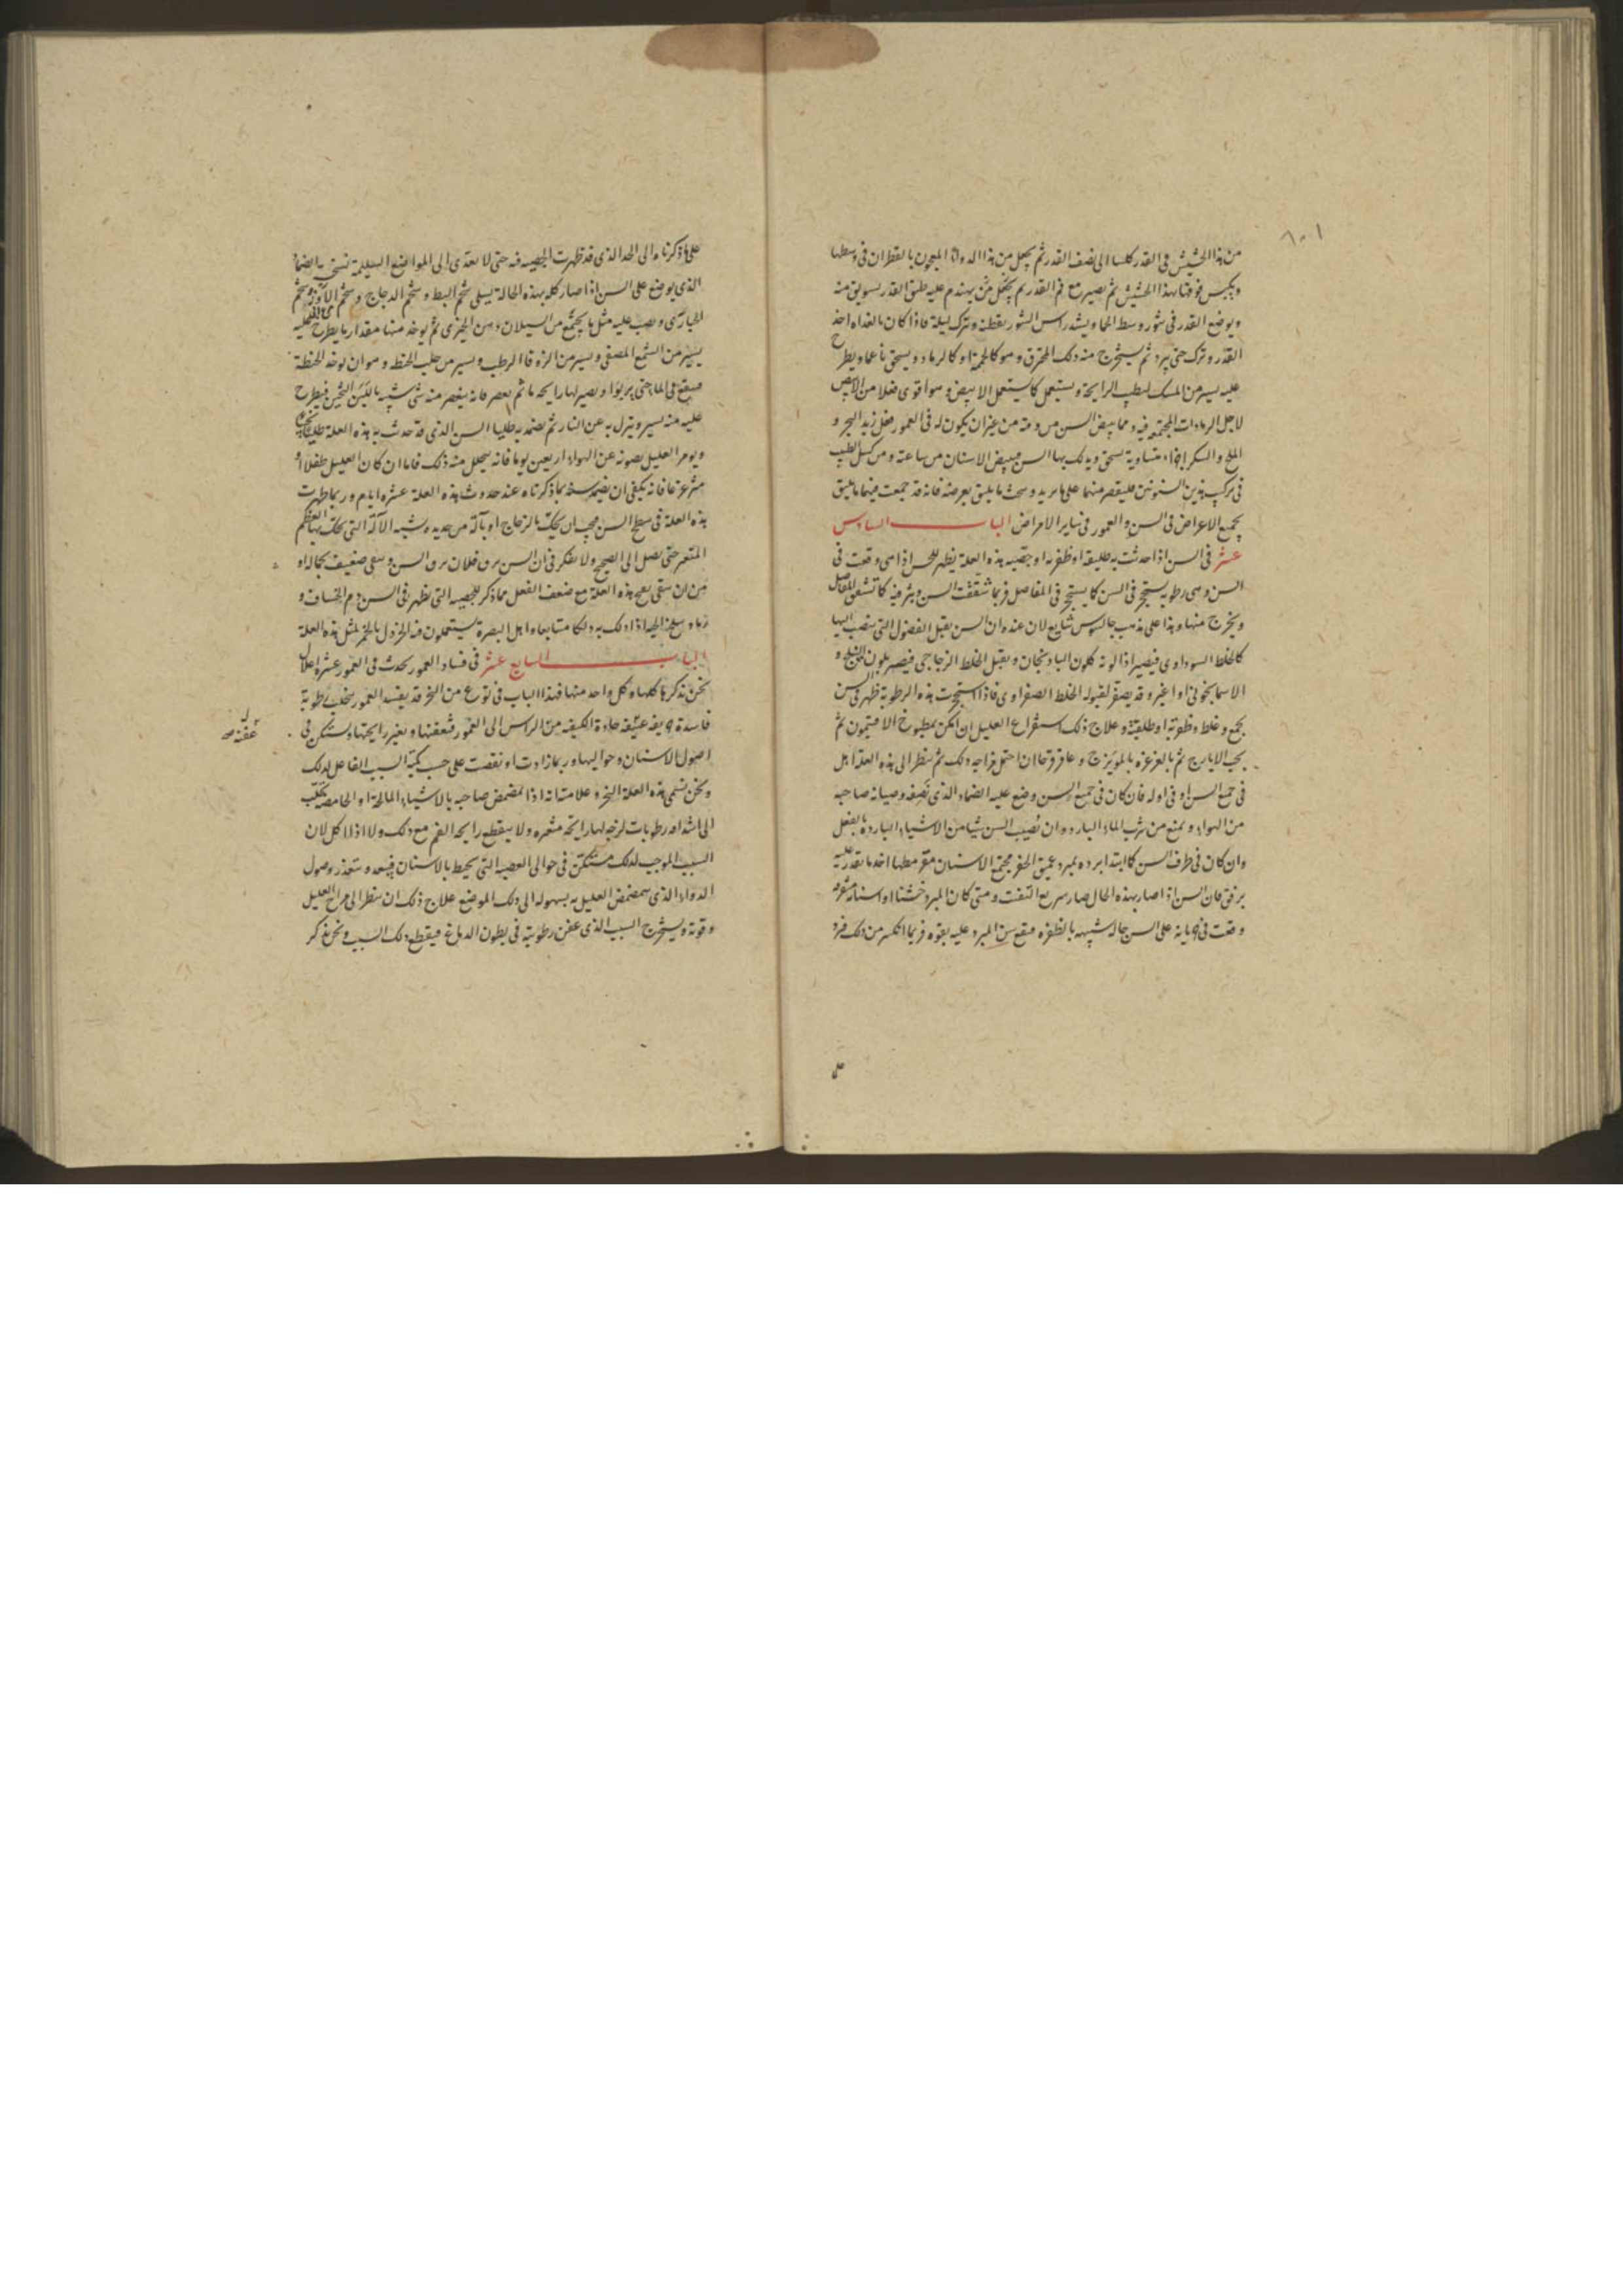 من هذا الحشيش فى القدر كلسا الى نصف القدر ثم يجعل من هذا الدواء المعجون بالقطران فى وسطها
ويكبس فوقها بهذا الحشيش ثم يصير مع فم القدر ثم يهندم عليه طبق القدر بسويق منه
ويوضع القدر فى تنور وسط الحما ويشد راس التنور بقطنة ويترك ليلة فاذا كان بالغداه اخذ
القدر وترك حتى يبرد ثم يستخرج منه ذلك المحترق وهو كالحممة او كالرماد ويسحق ناعما ويطرح
عليه يسير من المسك ليطيب الرايحة ويستعمل كما يستعمل الابيض وهو اقوى فعلا من الابيض
لاجل الرمادات المجتمعة فيه ومما يبيض السن من غير ان يكون له فى العمور فعل زبد البحر و
الملح والسكر اجزاء متساوية يسحق ويدلك بها السن فيبيض الاسنان من ساعته ومن كسل الطبيب
فى تركيب هذين السنونين فليقتصر منهما على ما يريد وبحث ما يليق بغرضه فانه قد جمعت فيهما ما يليق
بجميع الاعراض فى السن والعمور فى ساير الامراض الباب السادس
عشر فى السن اذا حدثت به طليقة او ظفرة او جصيه هذه العلة يظهر للحس اذا هى وقعت فى
السن وهى رطوبة يستحجر فى السن كما يستحجر فى المفاصل فربما شققت السن وبثر فيه كما تشقق المفاصل
ويخرج منها وهذا على مذهب جالينوس شايع لان عنده ان السن يقبل الفضول التى ينصب اليها
كالخلط السوداوى فيصير اذا لونه كلون البادنجان ويقبل الخلط الزجاجى فيصير بلون الثلج و
الاسمانجونى او اغبر وقد يصفر لقبوله الخلط الصفراوى فاذا استحجرت هذه الرطوبة ظهر فى السن
وعلاج ذلك استفراغ العليل ان امكن بمطبوخ الافتيمون ثم
بحب الايارج ثم بالغرغره بالمويزج وعاقرقرحا ان احتمل مزاجه ذلك ثم ينظر الى هذه العلة اهل
فى جميع السن او فى اوله فان كان فى جميع السن وضع عليه الضماد الذى نصفه وصيانة صاحبه
من الهواء ويمنع من شرب الماء البارد وان تصيب السن شيا من الاشياء الباردة بالفعل
وان كان فى طرف السن كما ابتدا برده بمبرد عميق الحفر مجتمع الاسنان
برفق فان السن اذا صار بهذه الحال صار سريع التفتت ومتى كان المبرد خشنا او اسنانه
وقعت فى على السن حاله شبيهه بالظفره فيقع سن المبرد عليه بقوه فربما انكسر من ذلك
على
على ما ذكرناه الى الحد الذى قد ظهرت الجصيه فيه حتى لا يتعدى الى المواضع السليمة نسخة الضماد
الذى يوضع على السن اذا صار كله بهذه الحالة يسلى شحم البط وشحم الدجاج وشحم الاوز وشحم
الحبارى ويصب عليه مثل ما يجتمع من السيلان دهن الخيرى ثم يوخذ منها مقدار ما يطرح عليه
يسير من الشمع المصفى ويسير من الزوفا الرطب ويسير من حليب الحنطة وهو ان يوخذ الحنطة
فينقع فى الما حتى يربوا ويصير لها رايحة ما ثم يعصر فانه يعصر منه شى شبيه باللبن الثخين فيطرح
عليه منه يسير وينزل به عن النار ثم يضمد به طليا السن الذى قد حدث به هذه العلة
ويومر العليل بصونه عن الهواء اربعين يوما فانه يتحلل منه ذلك فاما ان كان العليل طفلا او
مترعرعا فانه يكفى ان يضمد سنه بما ذكرناه عند حدوث هذه العلة عشره ايام وربما ظهرت
هذه العلة فى سطح السن فيجب ان يحك بالزجاج او بآلة من حديد شبه الآلة التى يحك بها العظم
المتقعر حتى يصل الى الصحيح ولا يفكر فى ان السن يرق فلان يرق السن ويبقى ضعيف بحاله او
من ان يبقى مع هذه العلة مع ضعف الفعل مما ذكر للجصيه التى يظهر فى السن دم الخشاف و
اذا دلك به دلكا متتابعا واهل البصرة يستعملون فيه الخردل بالخمر لمثل هذه العلة
الباب السابع عشر فى فساد العمور يحدث فى العمور عشره اعلال
نحن نذكرها كلها وكل واحد منها فهذا الباب فى نوع من البخر قد يفسد العمور بتحلب رطوبة
فاسدة حاده الكيفيه من الراس الى العمور فتعفنها وتغير رايحتها ويستكن فى
عفنه
اصول الاسنان وحواليها وربما زادت او نقصت على حسب كمية السبب الفاعل لذلك
ونحن نسمى هذه العلة البخر وعلامتها انه اذا تمضمض صاحبه بالاشياء المالحة او الحامضه يتحلب
الى اشداقه رطوبات لزجه لها رايحة ولا ينقطع رايحة الفم مع ذلك ولا اذا اكل لان
السبب الموجب لذلك مستكن فى حوالى العصبه التى يحيط بالاسنان فيبعد ويتعذر وصول
الدواء الذى يتمضمض العليل به بسهولة الى ذلك الموضع علاج ذلك ان ينظر الى مزاج العليل
وقوته ويستخرج السبب الذى عفن رطوبته فى بطون الدماغ فيقطع ذلك السبب ونحن نذكر